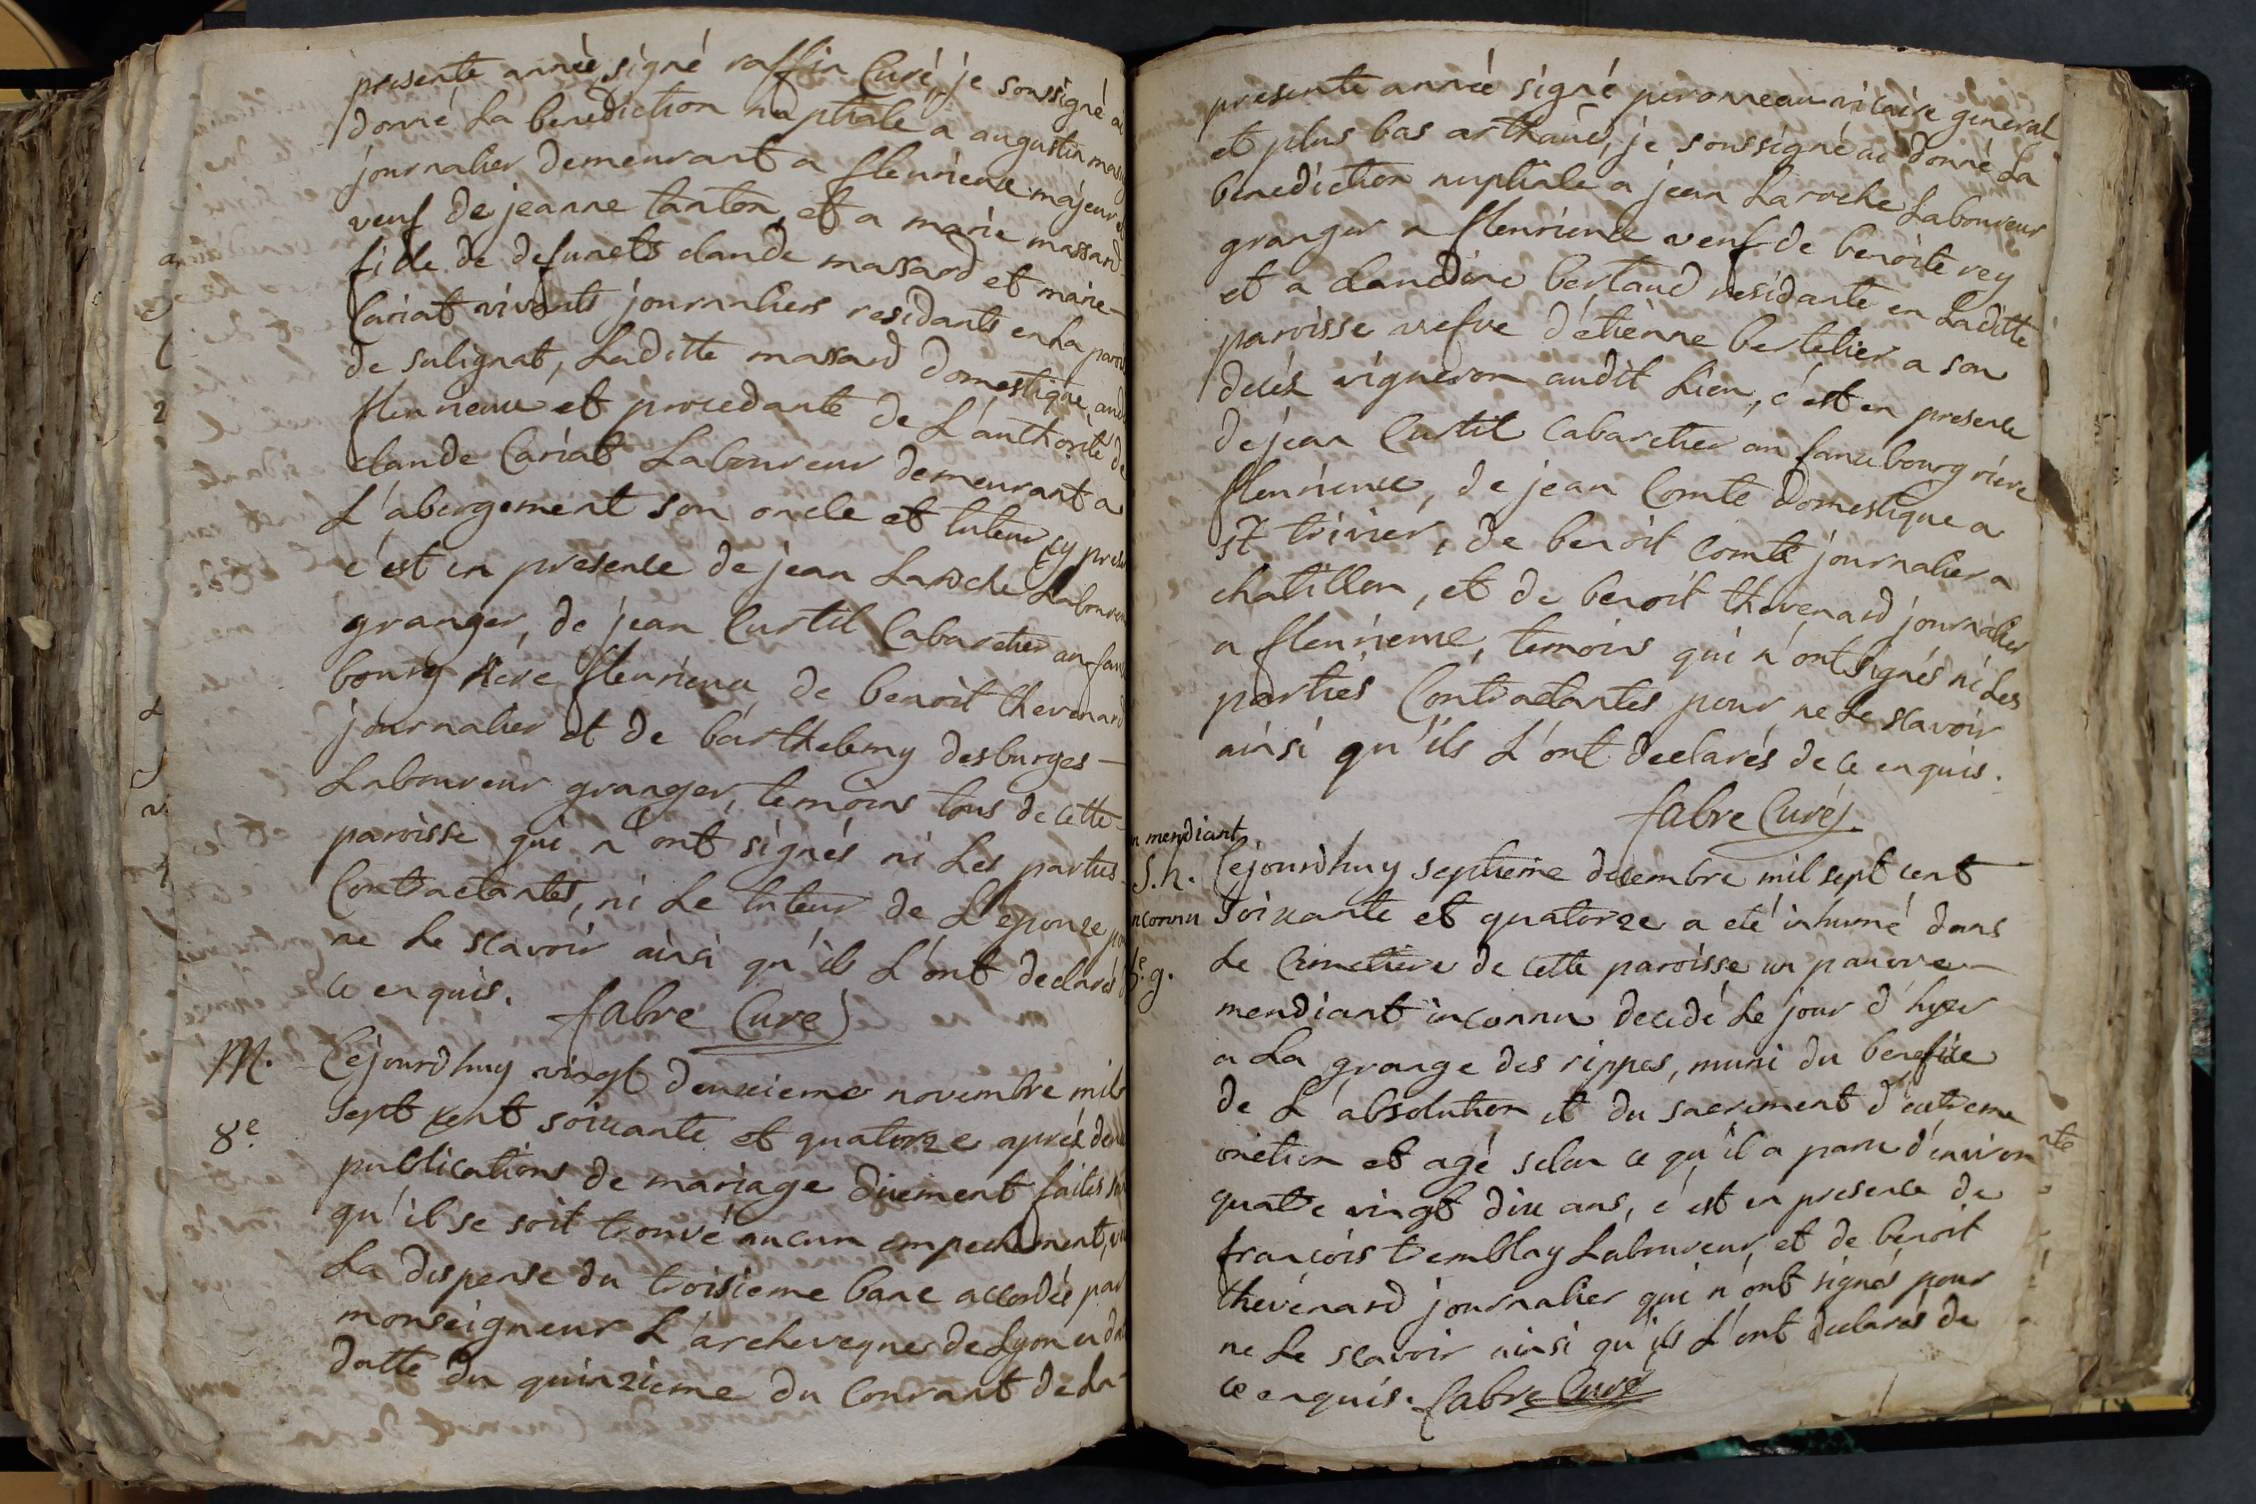 presente année, signé raffin Curé, je soussigné ai
donné La benediction nuptiale a augustin
journalier demeurant a fleurieux majeur et
veuf de jeanne tanton, et a marie massard
fille de defunets claude massard et marie
Cariat vivants journaliers residants en La
de sulignat, Laditte massard domestique
fleurieux et procedante de L'authorité de
claude Cariat Laboureur demeurant a
L'abergement son oncle et tuteur cy
c'est en presence de jean Laroche
granger, de jean Curtil Cabaretier au
bourg riere fleurieux de benoit thevenard
journalier et de barthelemy desburges
Laboureur granger, temoins tous de cette
paroisse qui n'ont signés ni Les parties
Contractantes, ni Le tuteur de L'epouse
ne Le scavoir ainsi qu'ils L'ont declarés
ce enquis. fabre Curé
M. Cejourdhuy vingt deuxieme novembre mil
8e. sept cent soixante et quatorze aprés
publications de mariage düement faites
qu'il se soit trouvé aucun empechement,
La dispense du troisieme banc accordée par
monseigneur L'archeveque de Lyon en
datte du quinzieme du Courant de La
presente année signé peronneau vicaire general
et plus bas arthaud, je soussigné ai donné La
benediction nuptiale a jean Laroche Laboureur
granger a fleurieux veuf de benoite rey
et a claudine bertaud residante en Laditte
paroisse vefve d'etiènne bertelier a son
decés vigneron audit Lieu, c'est en presence
de jean Curtil Cabaretier au fauxbourg riere
fleurieux, de jean Comte domestique a
st trivier, de benoit comte journalier a
chatillon, et de benoit thevenard journalier
a fleurieux, temoins qui n'ont signés ni Les
parties Contractantes pour ne Le scavoir
ainsi qu'ils L'ont declarés de ce enquis.
fabre Curé
mendiant
S.h. Cejourdhuy septieme decembre mil sept cent
soixante et quatorze a eté inhumé dans
Le Cimetiere de cette paroisse un pauvre
mendiant inconnu decedé Le jour d'hyer
a La grange des rippes, muni du benefice
de L'absolution et du sacrement d'extreme
onction et agé selon ce qu'il a paru d'environ
quatre vingt dix ans, c'est en presence de
francois tremblay Laboureur, et de benoit
thevenard journalier qui n'ont signés pour
ne Le scavoir ainsi qu'ils L'ont declarés de
ce enquis. fabre Curé